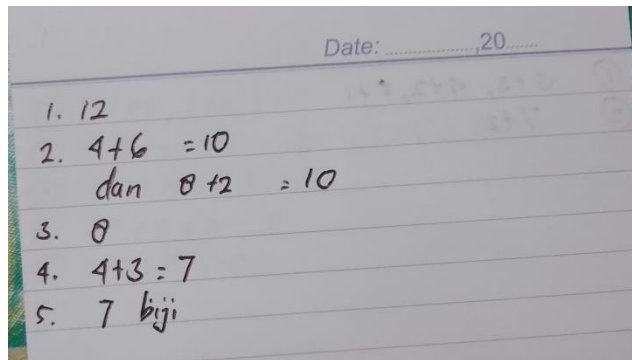 Date: ...............,20.......
1. 12
2. 4+6 = 10
dan 8+2 = 10
3. 8
4. 4+3 = 7
5. 7 biji